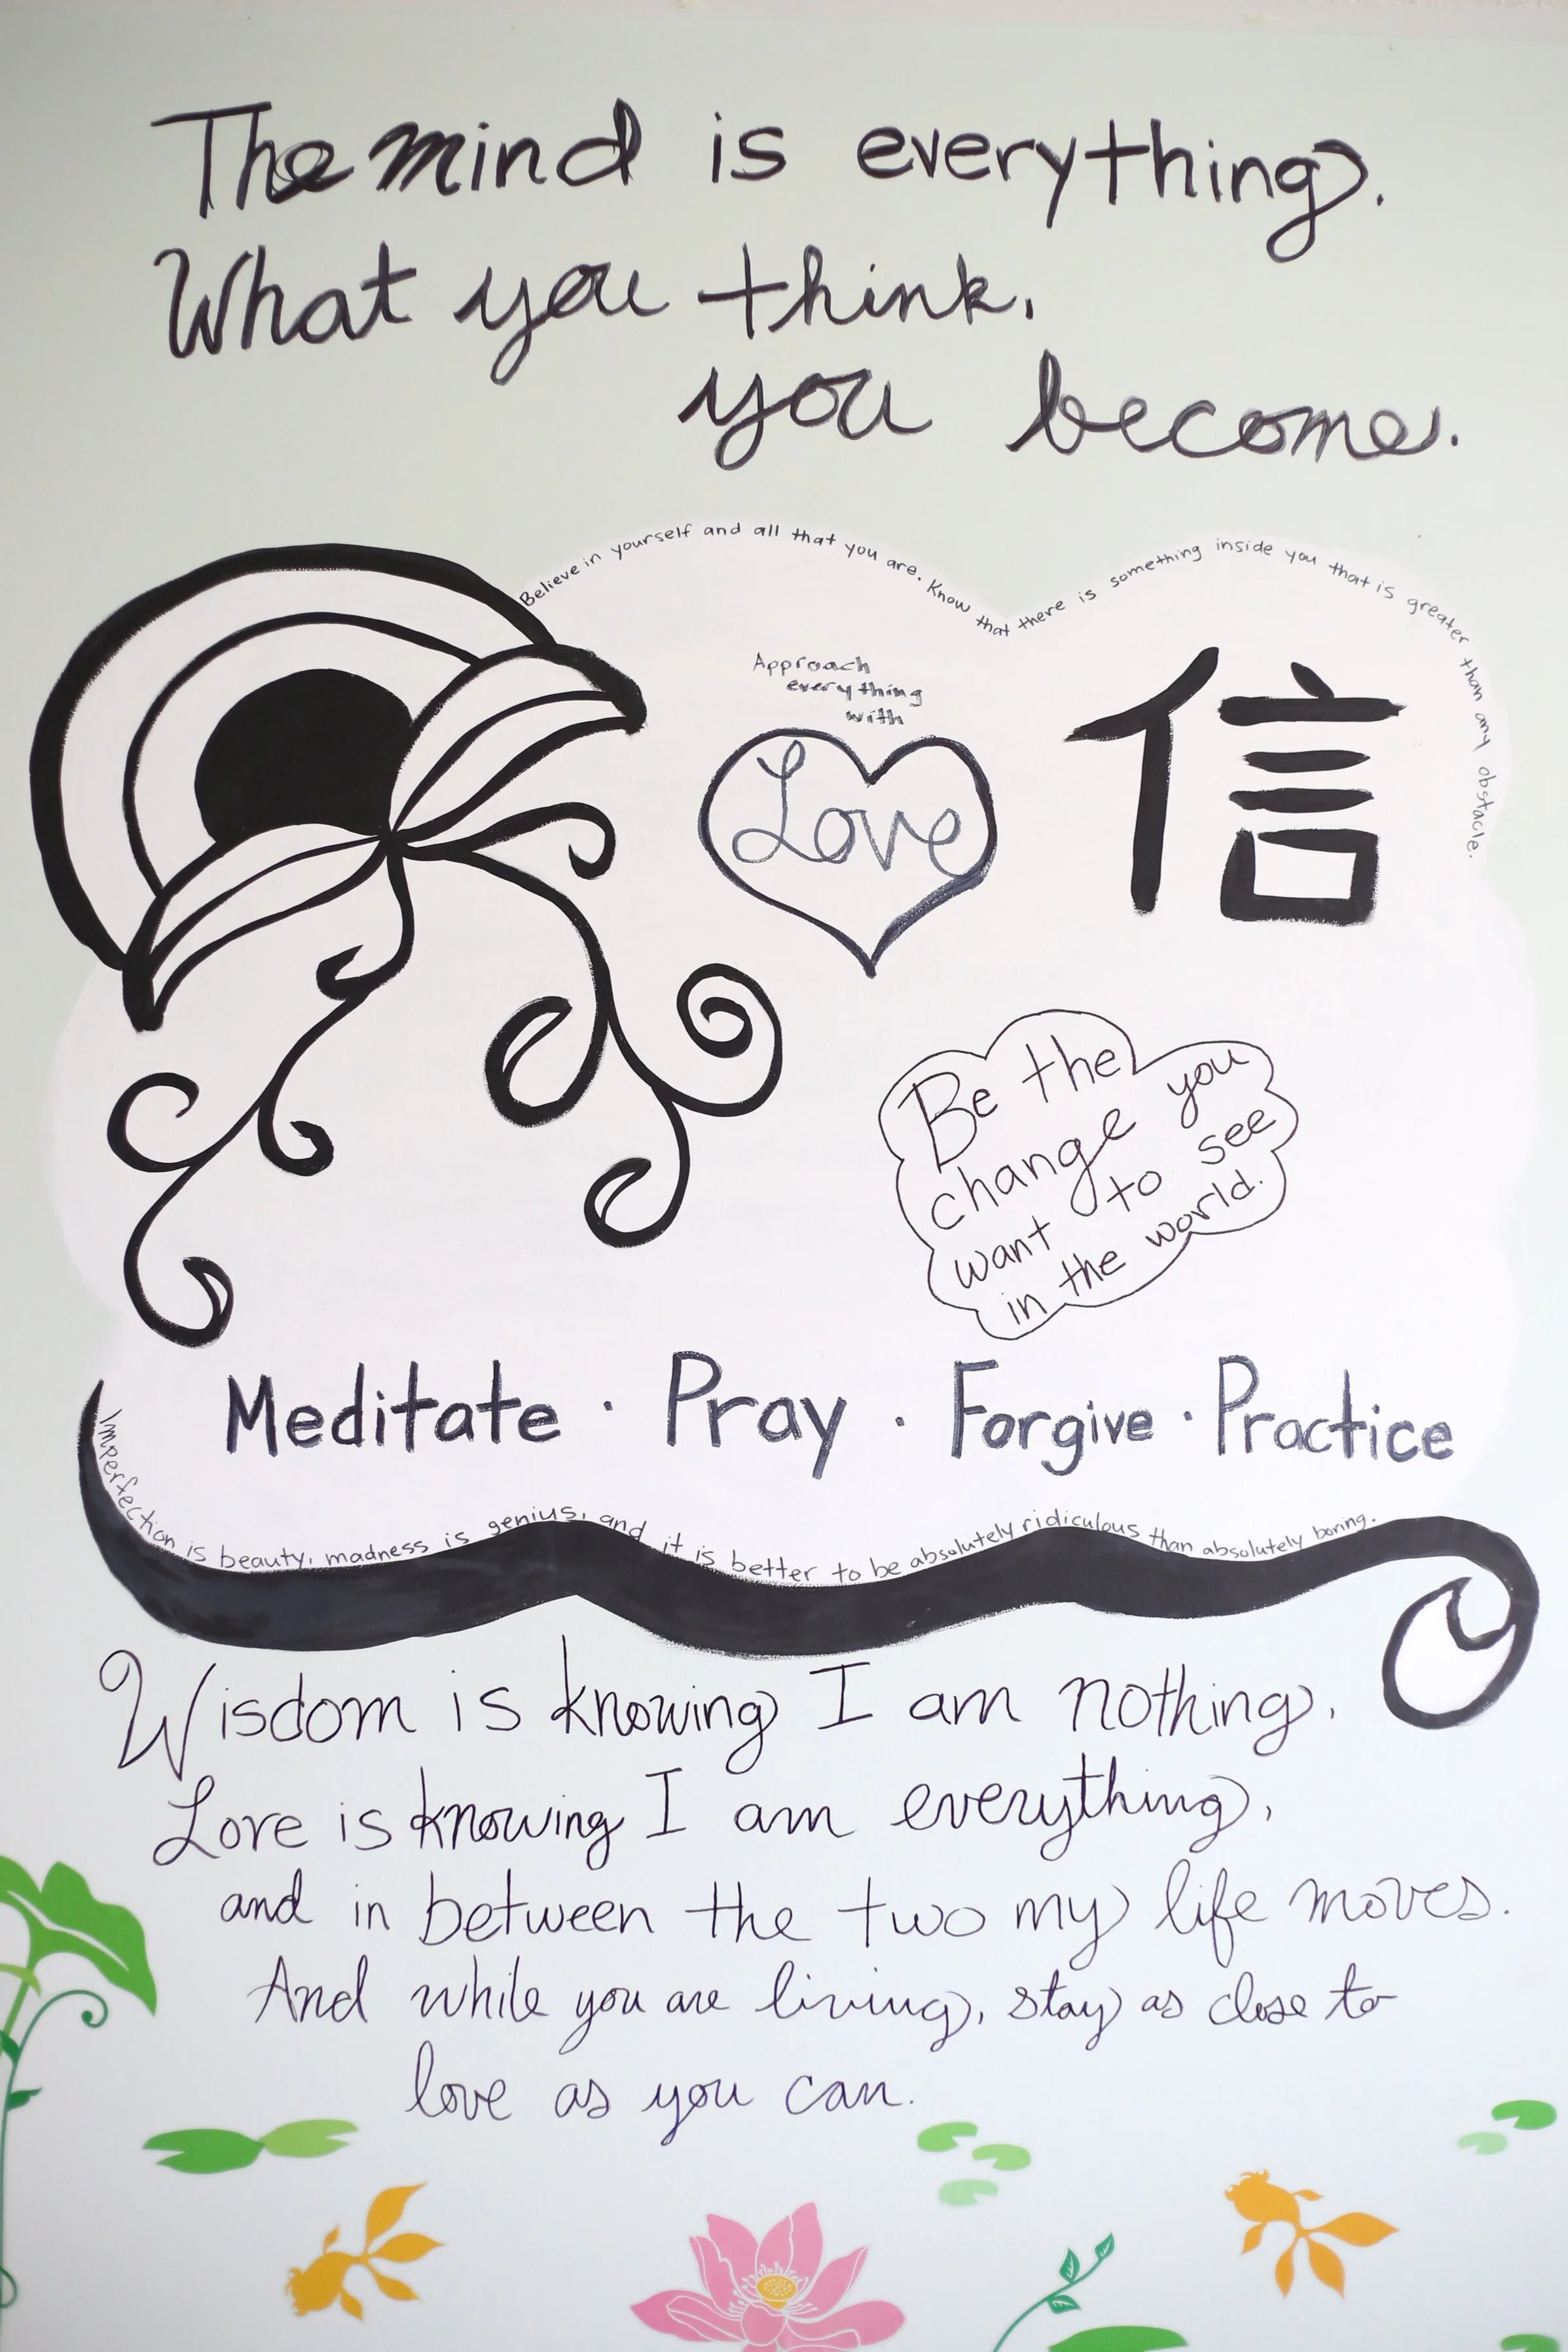 The mind is everything.
What you think,
you become.
Believe in yourself and all that you are. Know that there is something inside you that is greater than any obstacle.
Approach
everything
with
Love
信
Be the
change you
want to see
in the world.
Meditate · Pray · Forgive · Practice
Imperfection is beauty, madness is genius, and it is better to be absolutely ridiculous than absolutely boring.
Wisdom is knowing I am nothing,
Love is knowing I am everything,
and in between the two my life moves.
And while you are living, stay as close to
love as you can.